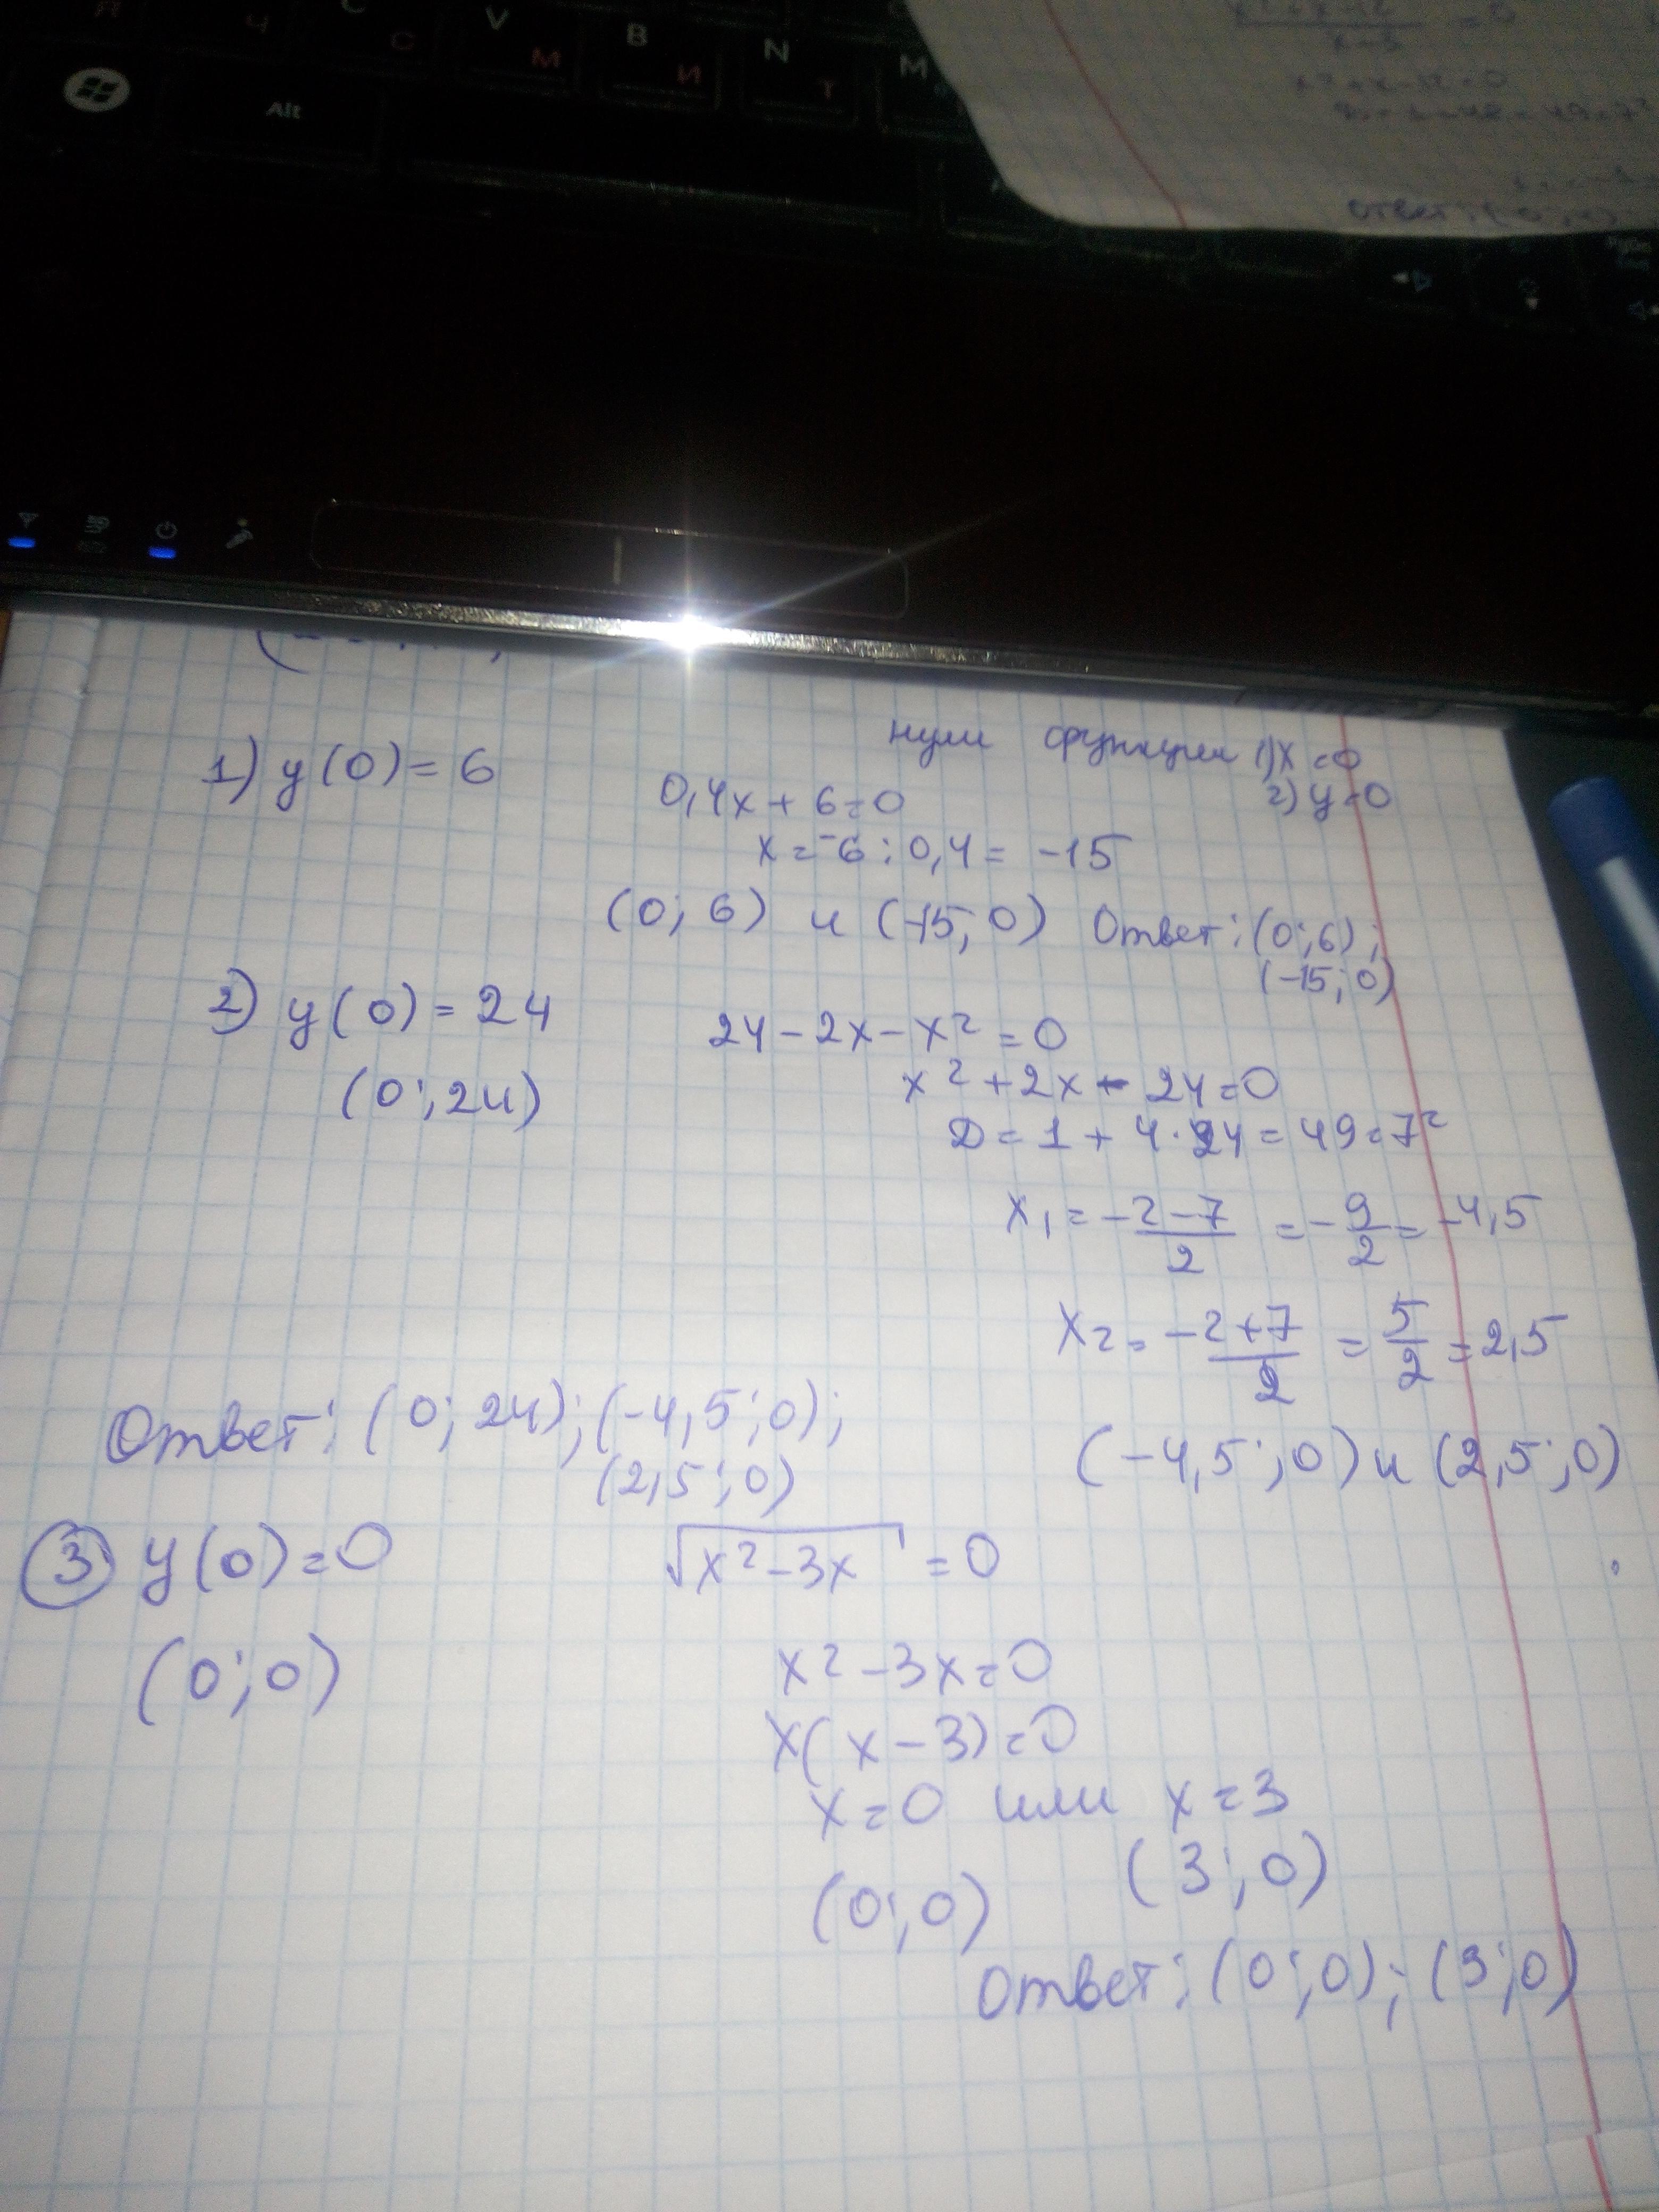 Ч С V М B И N Т M
Alt
= 0
x - 3
x² + x - 12 = 0
D = 1 + 48 = 49 = 7²
Ответ:
нули функции 1) x = 0
2) y = 0
1) y(0) = 6
0,4x + 6 = 0
x = -6 : 0,4 = -15
(0; 6) и (-15; 0) Ответ: (0; 6);
(-15; 0)
2) y(0) = 24
24 - 2x - x² = 0
(0; 24)
x² + 2x - 24 = 0
D = 1 + 4·24 = 49 = 7²
x₁ = -2-7/2 = -9/2 = -4,5
x₂ = -2+7/2 = 5/2 = 2,5
Ответ: (0; 24); (-4,5; 0);
(2,5; 0)
(-4,5; 0) и (2,5; 0)
3 y(0) = 0
√x² - 3x = 0
(0; 0)
x² - 3x = 0
x(x - 3) = 0
x = 0 или x = 3
(3; 0)
(0; 0)
Ответ: (0; 0); (3; 0)